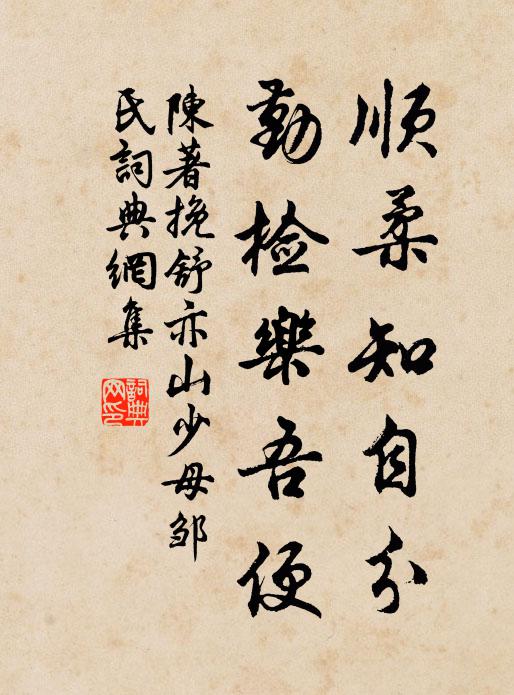 順柔知自分
勤检樂吾便
陳著挽舒亦山少母邹
氏詞典網集
詞典
网印